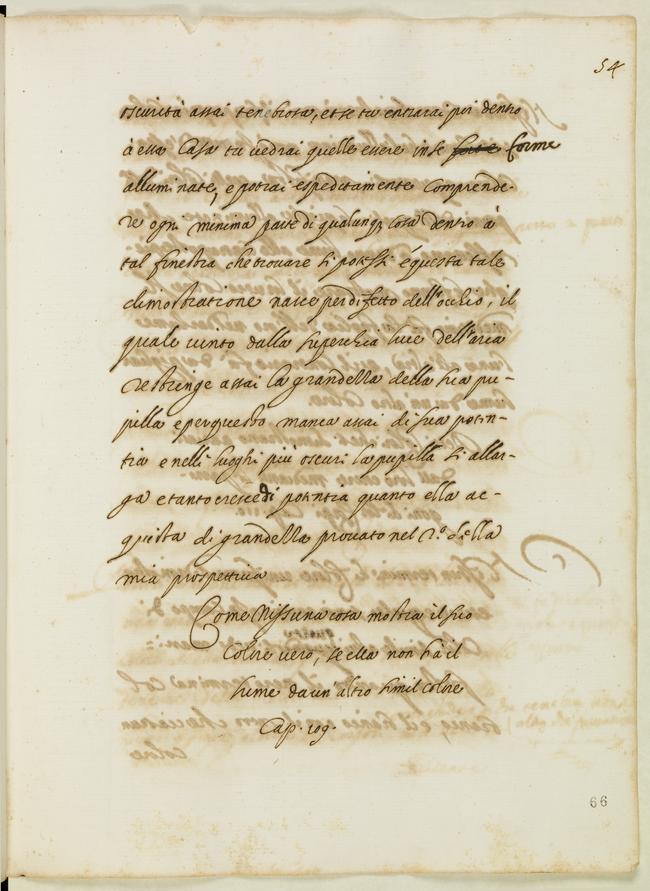 54
oscurità assai tenebrosa, et se tu entrarai poi dentro
à essa Casa tu vedrai quelle essere in se forte forme
alluminate, e potrai espeditamente Comprende-
re ogni minima parte di qualunq; cosa dentro à
tal finestra che trovare si potessi é questa tale
dimostratione nasce per difetto dell'occhio, il
quale vinto dalla superchia luce dell'aria
restringe assai la grandezza della sua pu-
pilla e per questo manca assai di sua poten-
tia e nelli luoghi più oscuri la pupilla si allar-
ga e tanto cresce di potentia quanto ella ac-
quista di grandezza provato nel 2.º della
mia prospettiva
Come Nissuna cosa mostra il suo
Colore vero, se ella non hà il
lume da un' altro simil colore
Cap. 109.
66